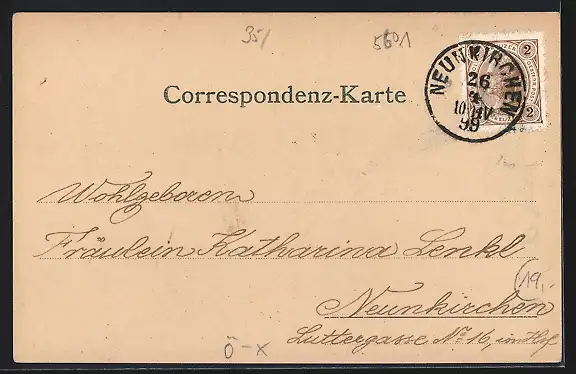 35/
5601
2
NEUNKIRCHEN
26
99
2
Correspondenz-Karte
Wohlgeboren
Fräulein Katharina Lenkl
19,-
Neunkirchen
Luttergasse No 16, im Hof
Ö-x